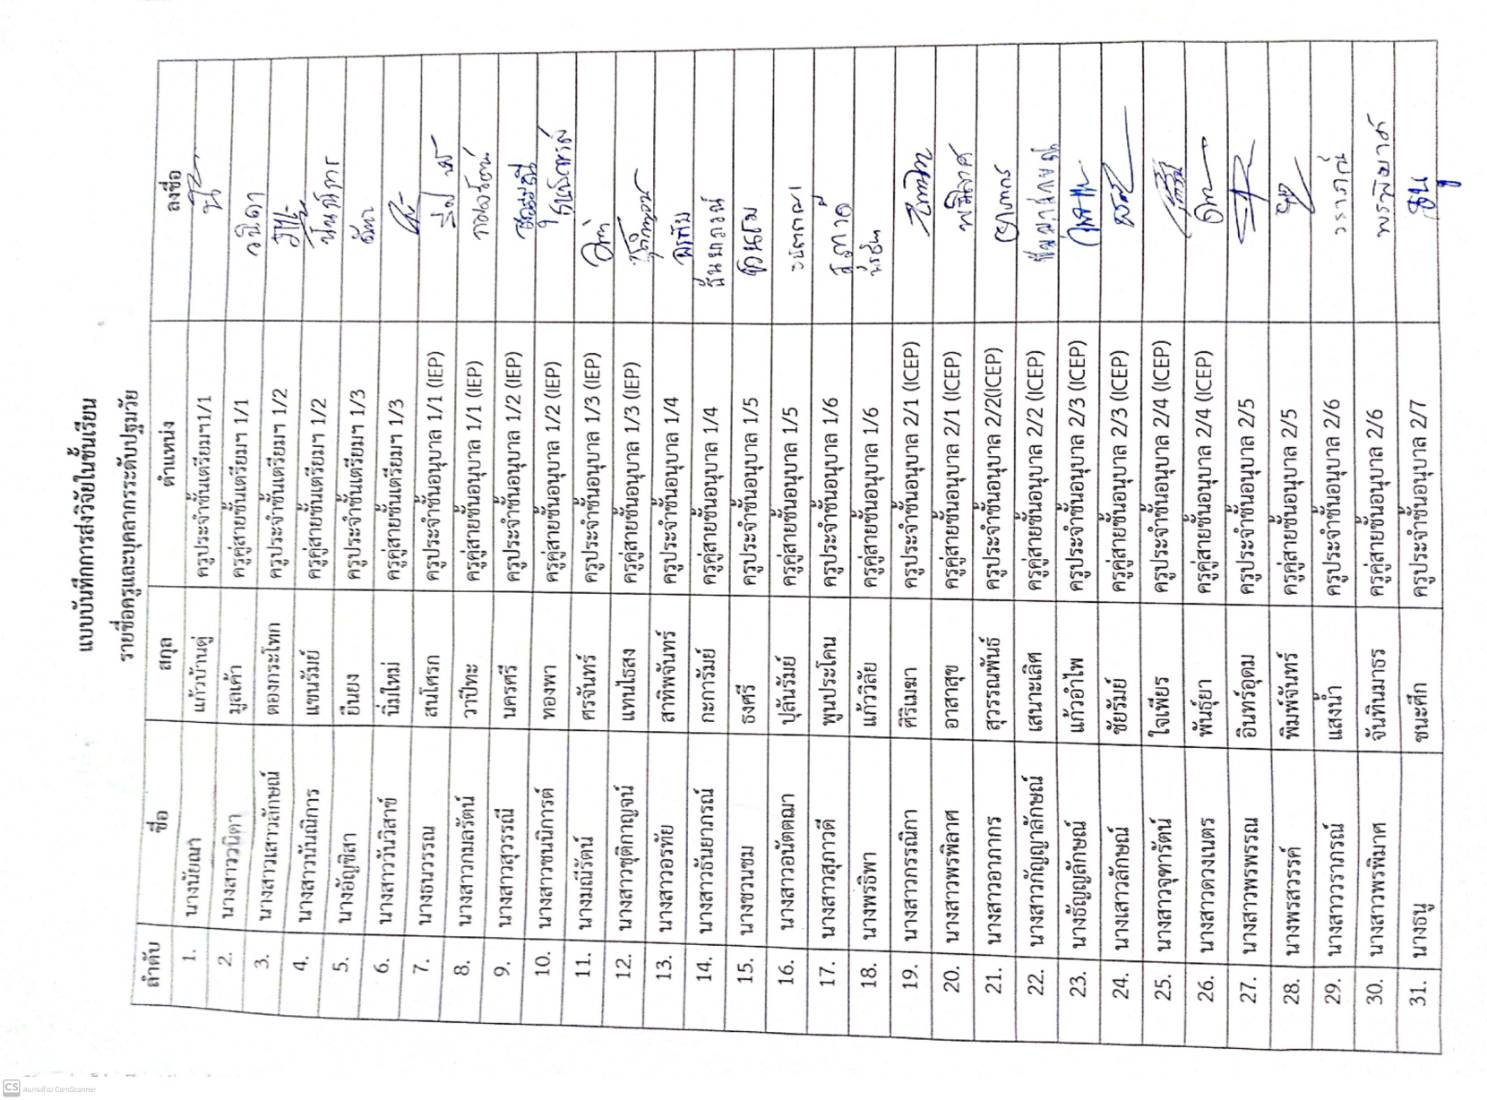 แบบบันทึกการส่งวิจัยในชั้นเรียน
รายชื่อครูและบุคลากรระดับปฐมวัย
ลำดับ ชื่อ สกุล ตำแหน่ง ลงชื่อ
1. นางนัยณา แก้วบ้านดู่ ครูประจำชั้นเตรียมฯ1/1
2. นางสาววนิดา มูลเค้า ครูคู่สายชั้นเตรียมฯ 1/1 วนิดา
3. นางสาวเสาวลักษณ์ ตองกระโทก ครูประจำชั้นเตรียมฯ 1/2
4. นางสาวนันณิการ แขนรัมย์ ครูคู่สายชั้นเตรียมฯ 1/2 นันณิการ
5. นางอัญชิสา ยืนยง ครูประจำชั้นเตรียมฯ 1/3
6. นางสาววันวิสาข์ นิ่มใหม่ ครูคู่สายชั้นเตรียมฯ 1/3
7. นางธนวรรณ สนโศรก ครูประจำชั้นอนุบาล 1/1 (IEP)
8. นางสาวกมลรัตน์ วาปีทะ ครูคู่สายชั้นอนุบาล 1/1 (IEP) กมลรัตน์
9. นางสาวสุวรรณี นครศรี ครูประจำชั้นอนุบาล 1/2 (IEP)
10. นางสาวชนนิการต์ ทองพา ครูคู่สายชั้นอนุบาล 1/2 (IEP)
11. นางมณีรัตน์ ศรจันทร์ ครูประจำชั้นอนุบาล 1/3 (IEP)
12. นางสาวชุติกาญจน์ แทนไธสง ครูคู่สายชั้นอนุบาล 1/3 (IEP)
13. นางสาวอรทัย สาทิพจันทร์ ครูประจำชั้นอนุบาล 1/4
14. นางสาวธันยาภรณ์ กะการัมย์ ครูคู่สายชั้นอนุบาล 1/4
15. นางชวนชม ธงศรี ครูประจำชั้นอนุบาล 1/5
16. นางสาวอนัตตฌา ปุลันรัมย์ ครูคู่สายชั้นอนุบาล 1/5
17. นางสาวสุภาวดี พูนประโคน ครูประจำชั้นอนุบาล 1/6
18. นางพรธิพา แก้ววิลัย ครูคู่สายชั้นอนุบาล 1/6
19. นางสาวกรรณิกา ศิริเมฆา ครูประจำชั้นอนุบาล 2/1 (ICEP)
20. นางสาวพรพิลาศ อาสาสุข ครูคู่สายชั้นอนุบาล 2/1 (ICEP)
21. นางสาวอาภากร สุวรรณพันธ์ ครูประจำชั้นอนุบาล 2/2(ICEP)
22. นางสาวกัญญาลักษณ์ เสนาะเลิศ ครูคู่สายชั้นอนุบาล 2/2 (ICEP)
23. นางธัญญลักษณ์ แก้วอำไพ ครูประจำชั้นอนุบาล 2/3 (ICEP)
24. นางเสาวลักษณ์ ชัยรัมย์ ครูคู่สายชั้นอนุบาล 2/3 (ICEP)
25. นางสาวจุฑารัตน์ ใจเพียร ครูประจำชั้นอนุบาล 2/4 (ICEP)
26. นางสาวดวงเนตร พันธุยา ครูคู่สายชั้นอนุบาล 2/4 (ICEP)
27. นางสาวพรพรรณ อินทร์อุดม ครูประจำชั้นอนุบาล 2/5
28. นางพรสวรรค์ พิมพ์จันทร์ ครูคู่สายชั้นอนุบาล 2/5
29. นางสาววราภรณ์ แสงน้ำ ครูประจำชั้นอนุบาล 2/6 วราภรณ์
30. นางสาวพรพิมาศ จันทินมาธร ครูคู่สายชั้นอนุบาล 2/6 พรพิมาศ
31. นางธนู ชนะศึก ครูประจำชั้นอนุบาล 2/7 ธนู
CS สแกนด้วย CamScanner